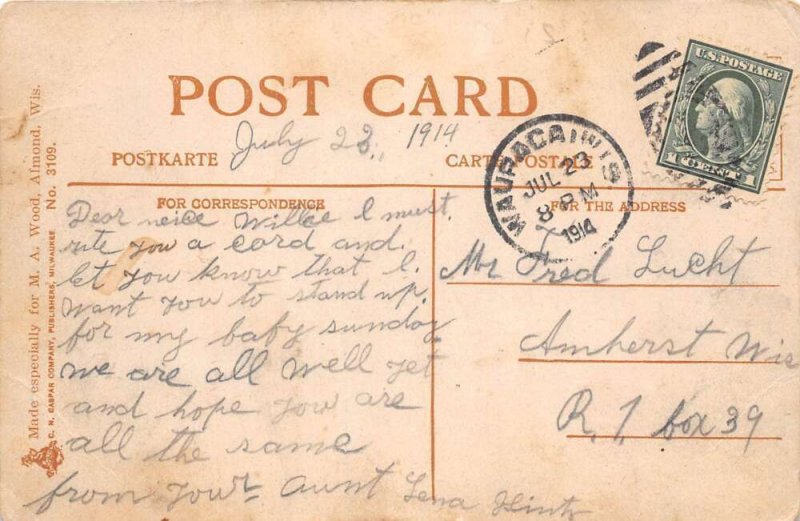 U.S. POSTAGE
1 CENT 1
POST CARD
July 23, 1914
POSTKARTE
CARTE POSTALE
WAUPACA WIS
JUL 23
8 PM
1914
FOR CORRESPONDENCE
FOR THE ADDRESS
Dear neice Willie I must
rite you a card and
let you know that I
want you to stand up
for my baby sunday
we are all well yet
and hope you are
all the same
from your aunt Lena Hintz
Mr Fred Lucht
Amherst Wis
R. 1 box 39
Made especially for M. A. Wood, Almond, Wis.
C. N. CASPAR COMPANY, PUBLISHERS, MILWAUKEE No. 3109.